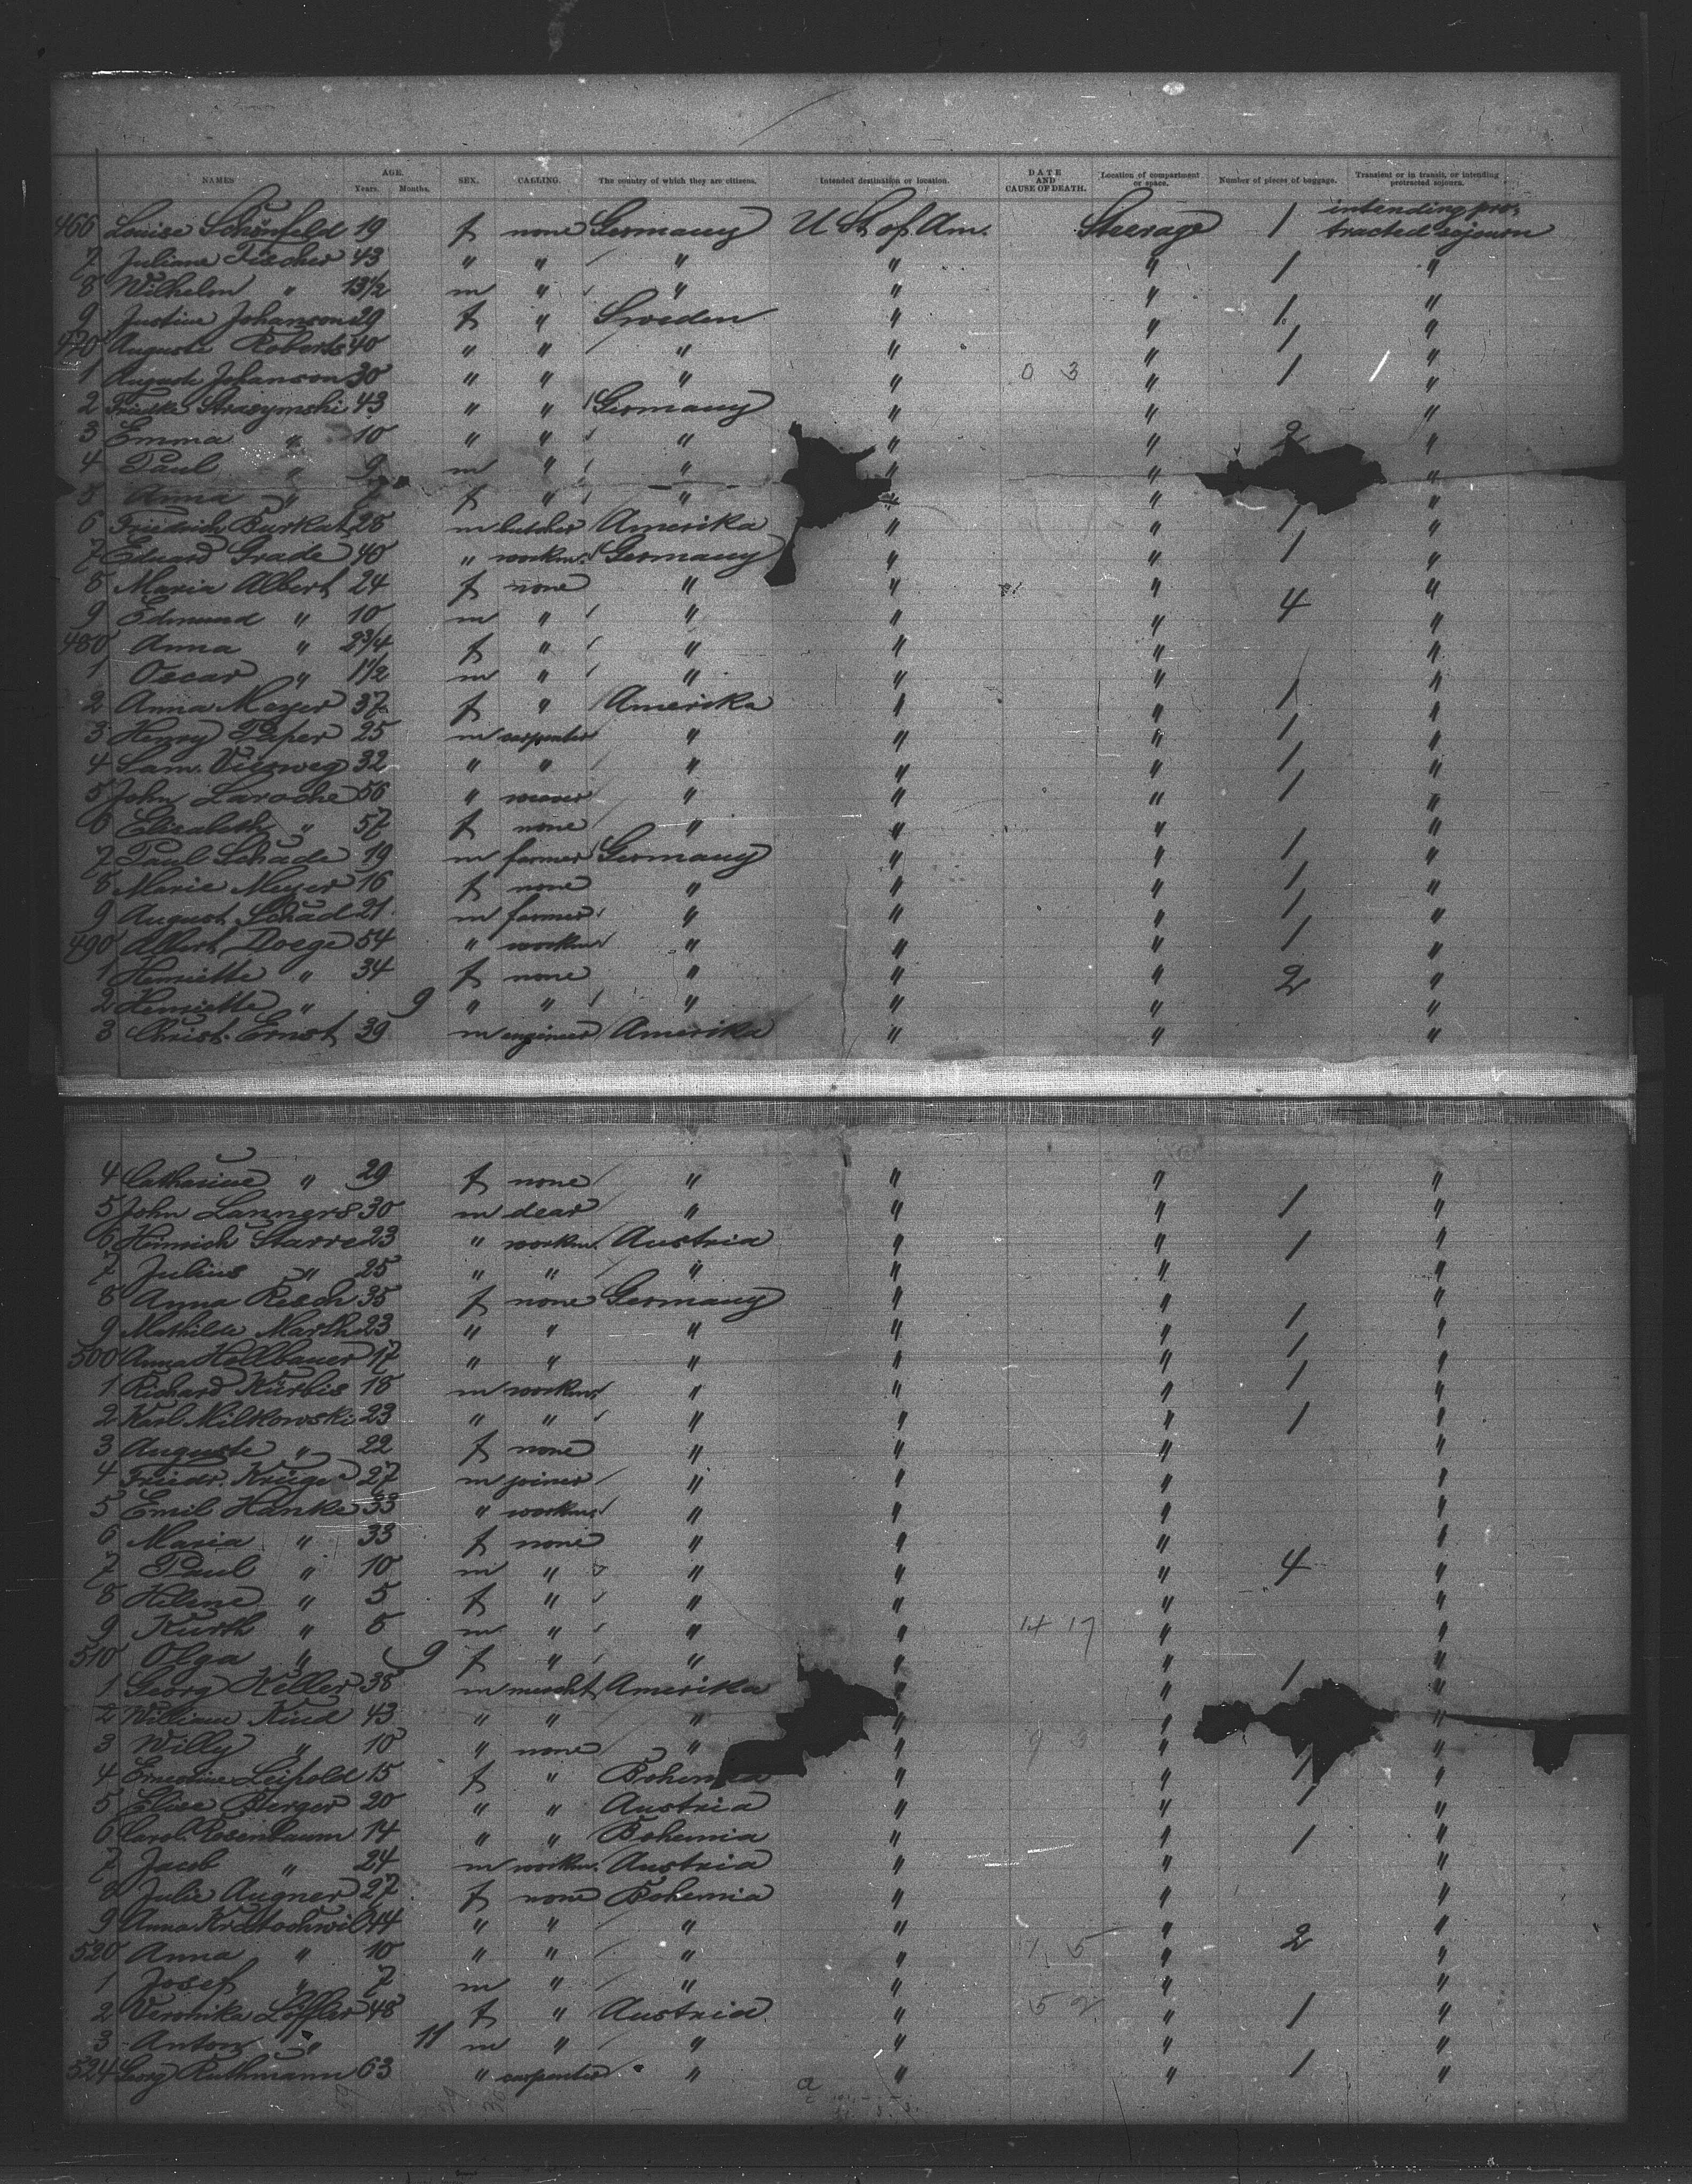 NAMES AGE. Years. Months. SEX. CALLING. The country of which they are citizens. Intended destination or location. DATE AND CAUSE OF DEATH. Location of compartment or space. Number of pieces of baggage. Transient or in transit, or intending protracted sojourn.
466 Louise Schönfeld 19 f none Germany U St of Am. Steerage 1 intending pro-tracted sojourn
7 Juliane Fischer 43 " " " " " 1 "
8 Wilhelm " 13 1/2 m " " " " "
9 Justine Johanson 29 f " Sweden " " 1 "
470 Auguste Roberts 40 " " " " " 1 "
1 Auguste Johanson 30 " " " " 0 3 " 1 "
2 Friedke 43 " " Germany " " "
3 Emma " 10 " " " " 2 "
4 Paul " 9 m " " " " "
5 Anna " f " " " " "
6 Friedrich Burkat 28 m butcher Amerika " " 1 "
7 Eduard Grade 40 " workm. Germany " " 1 "
8 Maria Albert 24 f none " " " "
9 Edmund " 10 m " " " " 4 "
480 Anna " 2 3/4 f " " " " "
1 Oscar " 1 1/2 m " " " " "
2 Anna Meyer 37 f " Amerika " " 1 "
3 Henry Piper 25 m carpenter " " " 1 "
4 Sam. Vieweg 32 " " " " " 1 "
5 John Laroche 56 " weaver " " " 1 "
6 Elisabeth " 57 f none " " " "
7 Paul Schade 19 m farmer Germany " " 1 "
8 Marie Meyer 16 f none " " " 1 "
9 August Schad 21 m farmer " " " 1 "
490 Albert Doege 54 " workm " " " 1 "
1 Henriette " 34 f none " " " 2 "
2 Henriette " 9 " " " " " "
3 Christ. Ernst 39 m engineer Amerika " " "
4 Catharine " 29 f none " " " "
5 John Lanners 30 m " " " 1 "
6 Heinrich Starre 23 " workm. Austria " " 1 "
7 Julius " 25 " " " " " "
8 Anna Resch 35 f none Germany " " "
9 Mathilde Marth 23 " " " " " 1 "
500 Anna Hellbauer 17 " " " " " 1 "
1 Richard Kürbis 18 m workm. " " " 1 "
2 Karl Milkowski 23 " " " " " 1 "
3 Auguste " 22 f none " " " "
4 Friedr. Krüger 27 m joiner " " " "
5 Emil Hanke 33 " workm. " " " "
6 Maria " 33 f none " " " "
7 Paul " 10 m " " " " 4 "
8 Helene " 5 f " " " " "
9 Kurth " 5 m " " " 14 17 " "
510 Olga " 9 f " " " " "
1 Georg Keller 38 m mercht Amerika " " 1 "
2 William Kind 43 " " " " " "
3 Willy " 10 " none " " 9 3 " "
4 Ernestine Leipold 15 f " Bohemia " " 1 "
5 Elise Berger 20 " " Austria " " 1 "
6 Carol. Rosenbaum 14 " " Bohemia " " 1 "
7 Jacob " 24 m workm. Austria " " "
8 Julie Augner 27 f none Bohemia " " "
9 Anna Kratochwil 44 " " " " " "
520 Anna " 10 " " " " 1 5 " 2 "
1 Josef " 7 m " " " " "
2 Veronika Löffler 48 f " Austria " 5 2 " 1 "
3 Anton " 11 m " " " " "
524 Georg Ruthmann 63 " carpenter " " " 1 "